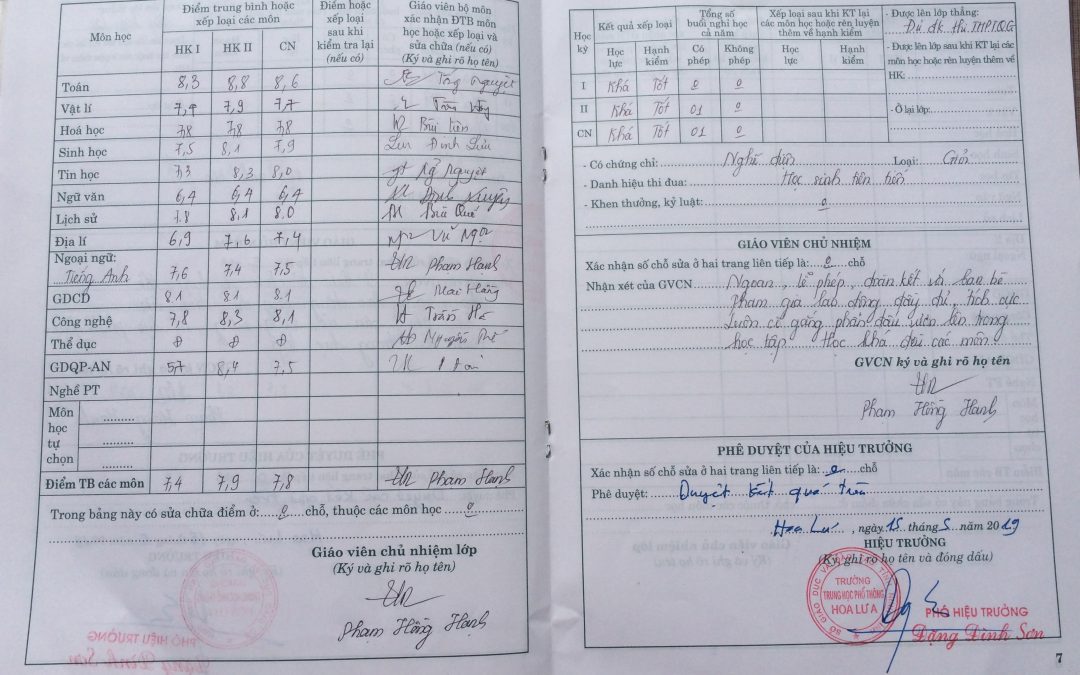 Môn học
Điểm trung bình hoặc xếp loại các môn
HK I HK II CN
Điểm hoặc xếp loại sau khi kiểm tra lại (nếu có)
Giáo viên bộ môn xác nhận ĐTB môn học hoặc xếp loại và sửa chữa (nếu có)
(Ký và ghi rõ họ tên)
Toán 8,3 8,8 8,6 Tống Nguyệt
Vật lí 7,4 7,9 7,7
Hoá học 7,8 7,8 7,8 Bùi Liên
Sinh học 7,5 8,1 7,9 Lưu Đinh Lưu
Tin học 7,3 8,3 8,0 Nguyệt
Ngữ văn 6,4 6,4 6,4 Đinh
Lịch sử 7.8 8,1 8.0 Bùi Quế
Địa lí 6,9 7,6 7,4 Vũ Ngọc
Ngoại ngữ:
Tiếng Anh 7,6 7,4 7,5 Phạm Hạnh
GDCD 8.1 8.1 8.1 Mai Hằng
Công nghệ 7,8 8,3 8,1 Trần Hà
Thể dục Đ Đ Đ Nguyễn
GDQP-AN 5,7 8,4 7,5
Nghề PT
Môn học tự chọn
Điểm TB các môn 7,4 7,9 7,8 Phạm Hạnh
Trong bảng này có sửa chữa điểm ở: 0 chỗ, thuộc các môn học 0
Giáo viên chủ nhiệm lớp
(Ký và ghi rõ họ tên)
Phạm Hồng Hạnh
Học kỳ
Kết quả xếp loại
Học lực Hạnh kiểm
Tổng số buổi nghỉ học cả năm
Có phép Không phép
Xếp loại sau khi KT lại các môn học hoặc rèn luyện thêm về hạnh kiểm
Học lực Hạnh kiểm
I Khá Tốt 0 0
II Khá Tốt 01 0
CN Khá Tốt 01 0
- Được lên lớp thẳng:
Đủ đk thi THPTQG
- Được lên lớp sau khi KT lại các môn học hoặc rèn luyện thêm về HK:
- Ở lại lớp:
- Có chứng chỉ: Nghề điện Loại: Giỏi
- Danh hiệu thi đua: Học sinh tiên tiến
- Khen thưởng, kỷ luật: 0
GIÁO VIÊN CHỦ NHIỆM
Xác nhận số chỗ sửa ở hai trang liên tiếp là: 0 chỗ
Nhận xét của GVCN Ngoan, lễ phép, đoàn kết với bạn bè
Tham gia lao động đầy đủ, tích cực
Luôn cố gắng phấn đấu vươn lên trong
học tập Học khá đều các môn.
GVCN ký và ghi rõ họ tên
Phạm Hồng Hạnh
PHÊ DUYỆT CỦA HIỆU TRƯỞNG
Xác nhận số chỗ sửa ở hai trang liên tiếp là: 0 chỗ
Phê duyệt: Duyệt kết quả trên
Hoa Lư, ngày 15 tháng 5 năm 2019
HIỆU TRƯỞNG
(Ký, ghi rõ họ tên và đóng dấu)
TRƯỜNG
TRUNG HỌC PHỔ THÔNG
HOA LƯ A
PHÓ HIỆU TRƯỞNG
Đặng Đình Sơn
7